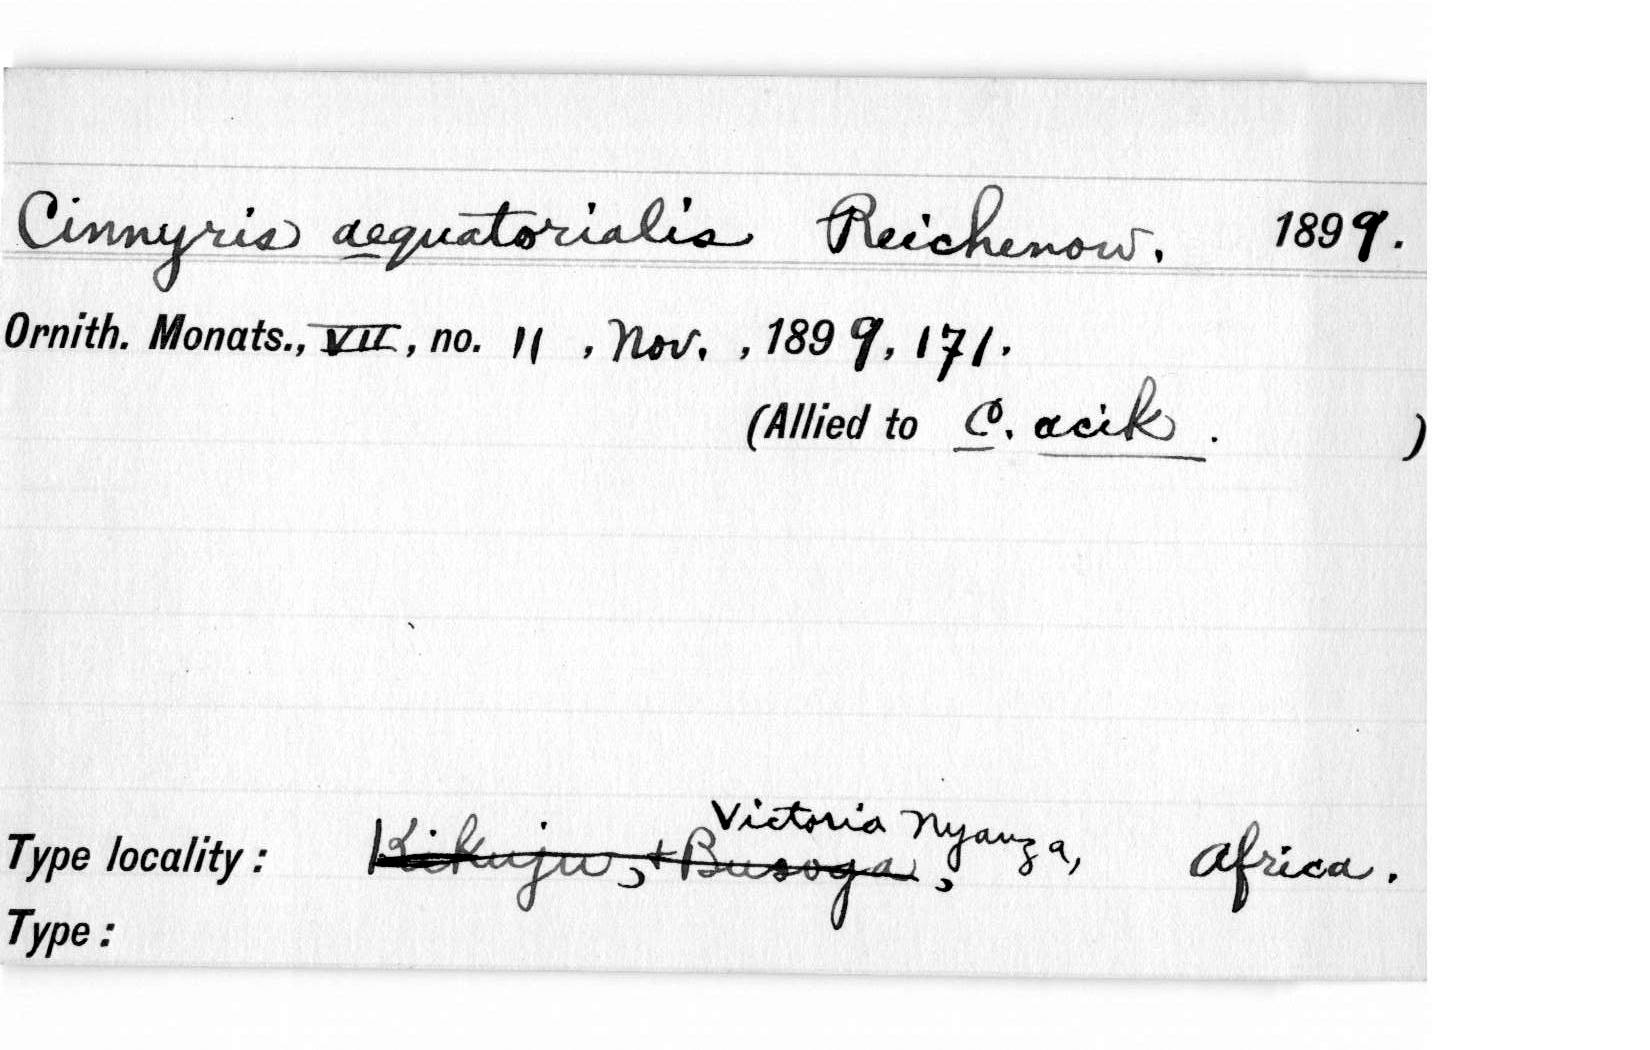 Cinnyris aequatorialis Reichenow. 1899.
Ornith. Monats., VII, no. 11, Nov., 1899, 171.
(Allied to C. acik. )
Victoria Nyanza,
Type locality: Kikuju, + Busoga, Africa.
Type: